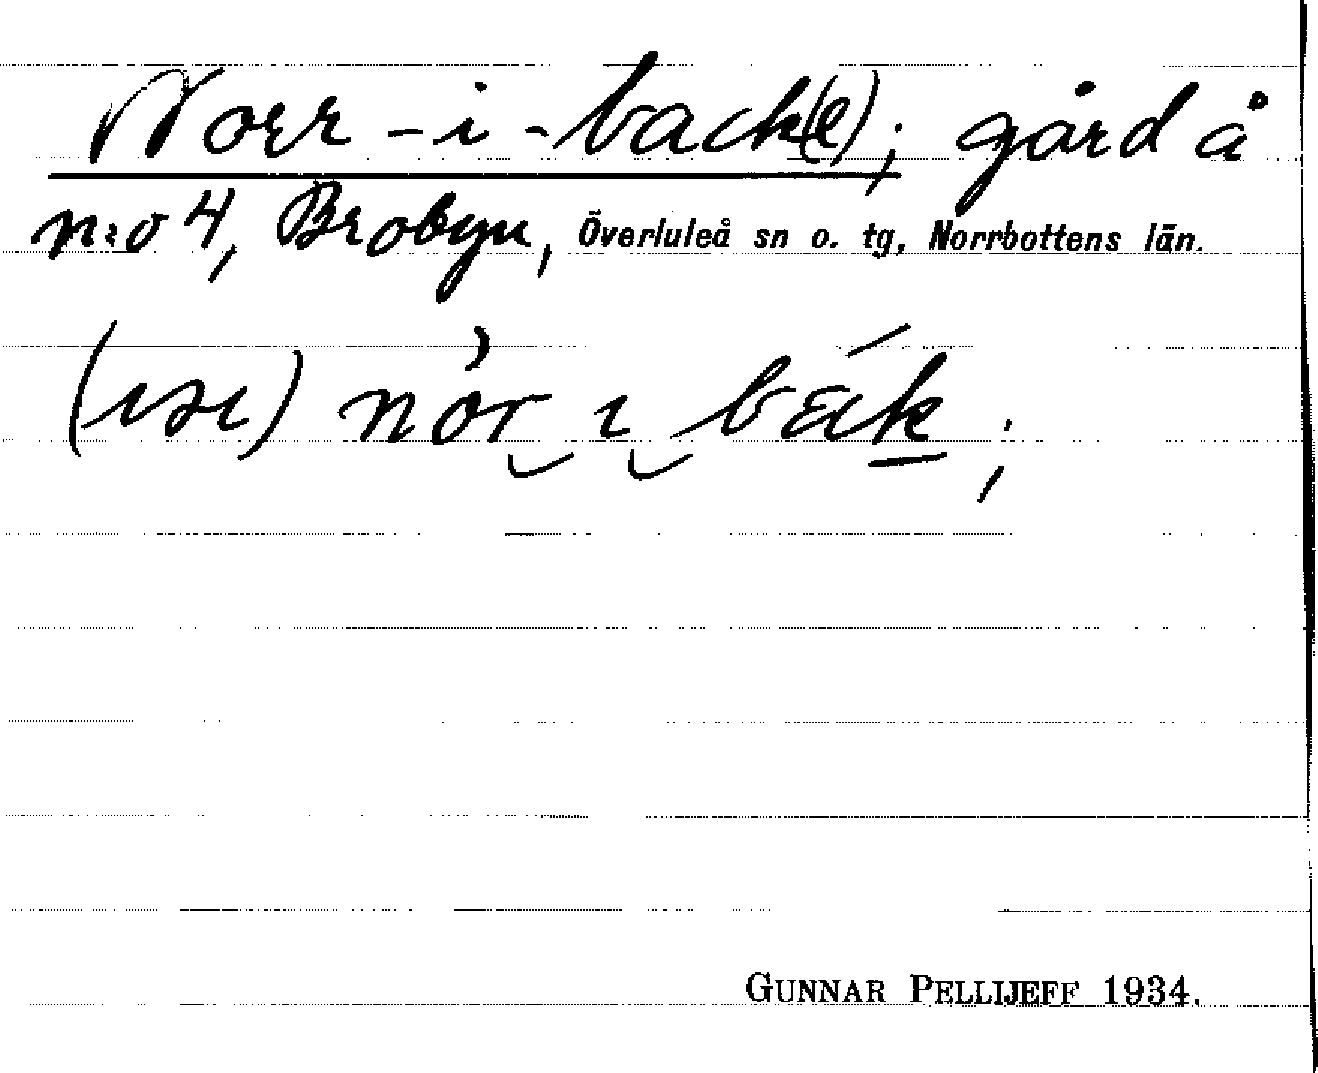 Norr-i-back(e); gård å
n:o 4, Brobyn, Överluleå sn o. tg, Norrbottens län.
(ısı) nór ı bák;
GUNNAR PELLIJEFF 1934.